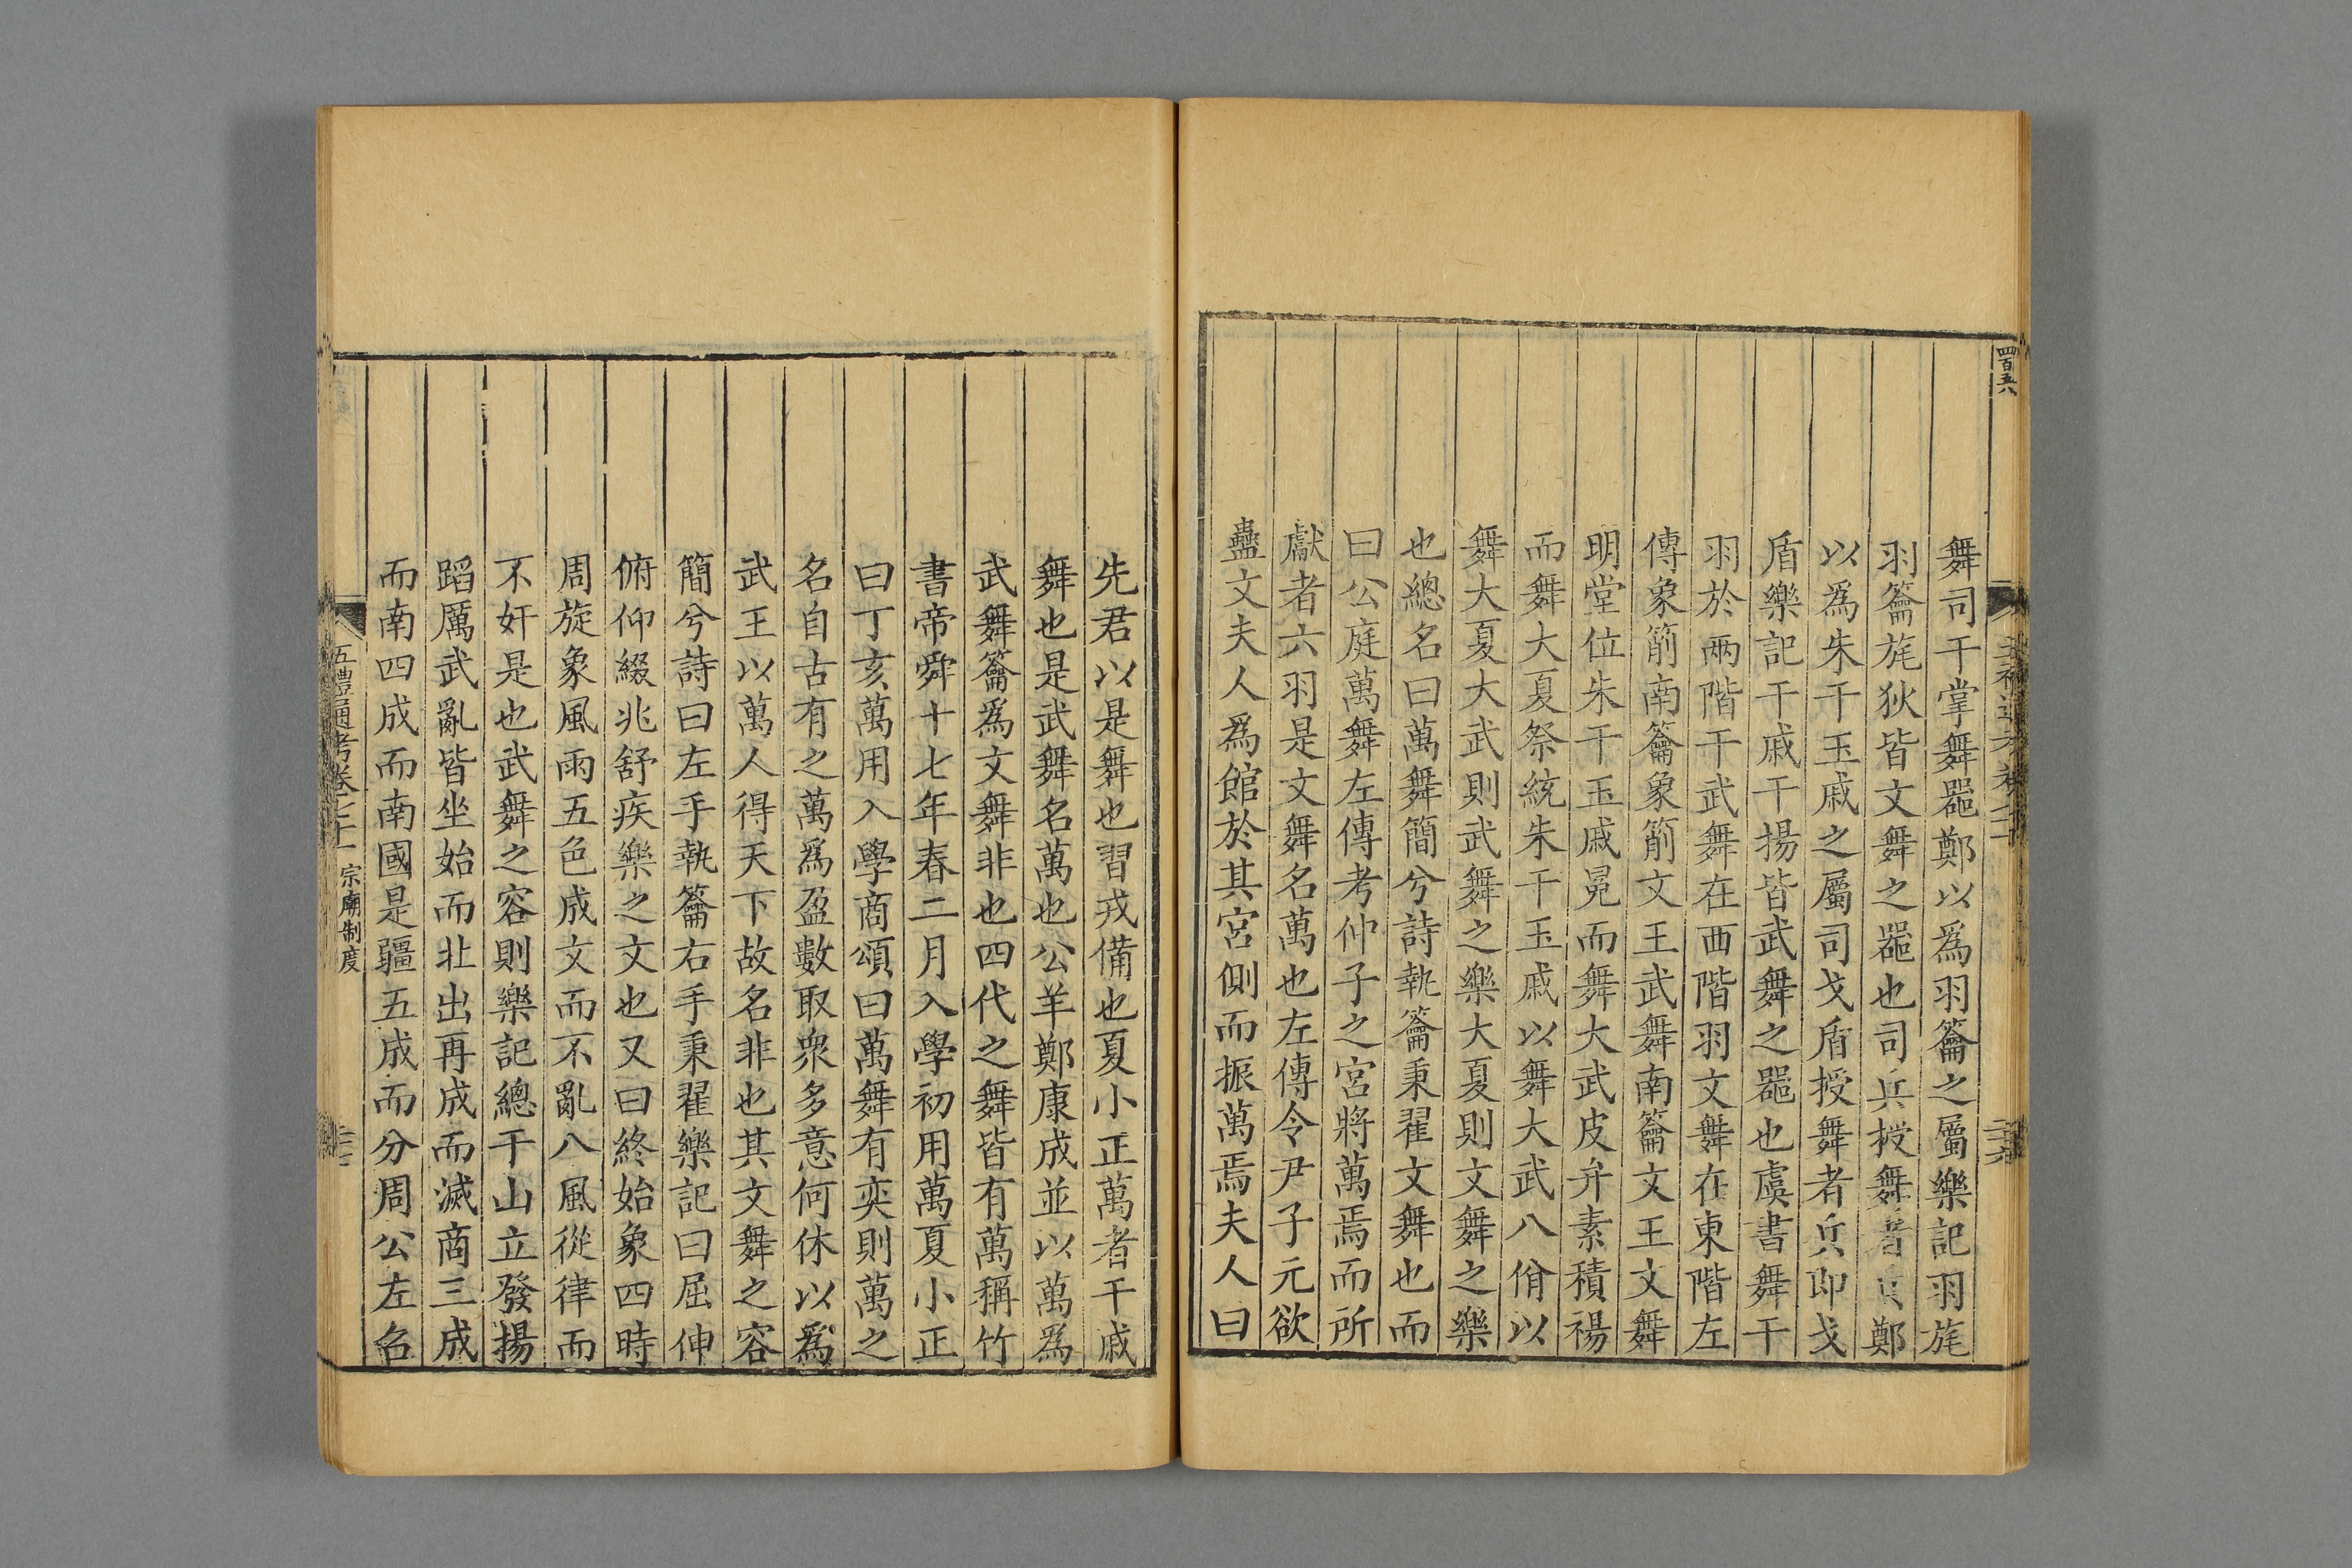 四百五八
舞司干掌舞噐鄭以為羽籥之屬樂記羽旄
羽籥旄狄皆文舞之噐也司兵授舞者兵鄭
以為朱干玉戚之屬司戈盾授舞者兵即戈
盾樂記干戚干揚皆武舞之噐也虞書舞干
羽於兩階干武舞在西階羽文舞在東階左
傳象箾南籥象箾文王武舞南籥文王文舞
明堂位朱干玉戚冕而舞大武皮弁素積裼
而舞大夏祭統朱干玉戚以舞大武八佾以
舞大夏大武則武舞之樂大夏則文舞之樂
也總名曰萬舞簡兮詩執籥秉翟文舞也而
曰公庭萬舞左傳考仲子之宮將萬焉而所
獻者六羽是文舞名萬也左傳令尹子元欲
蠱文夫人為館於其宮側而振萬焉夫人曰
先君以是舞也習戎備也夏小正萬者干戚
舞也是武舞名萬也公羊鄭康成並以萬為
武舞籥為文舞非也四代之舞皆有萬稱竹
書帝舜十七年春二月入學初用萬夏小正
曰丁亥萬用入學商頌曰萬舞有奕則萬之
名自古有之萬為盈數取衆多意何休以為
武王以萬人得天下故名非也其文舞之容
簡兮詩曰左手執籥右手秉翟樂記曰屈伸
俯仰綴兆舒疾樂之文也又曰終始象四時
周旋象風雨五色成文而不亂八風從律而
不奸是也武舞之容則樂記總干山立發揚
蹈厲武亂皆坐始而北出再成而滅商三成
而南四成而南國是疆五成而分周公左召
五禮通考卷七十一 宗廟制度